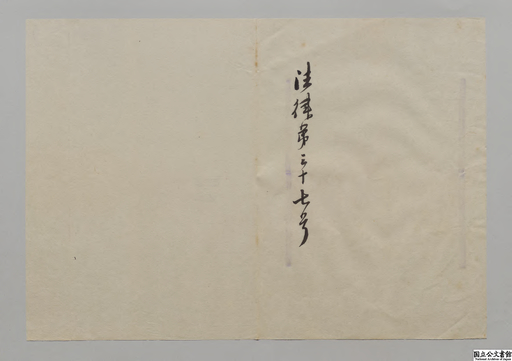 法律第三十七号
国立公文書館
National Archives of Japan